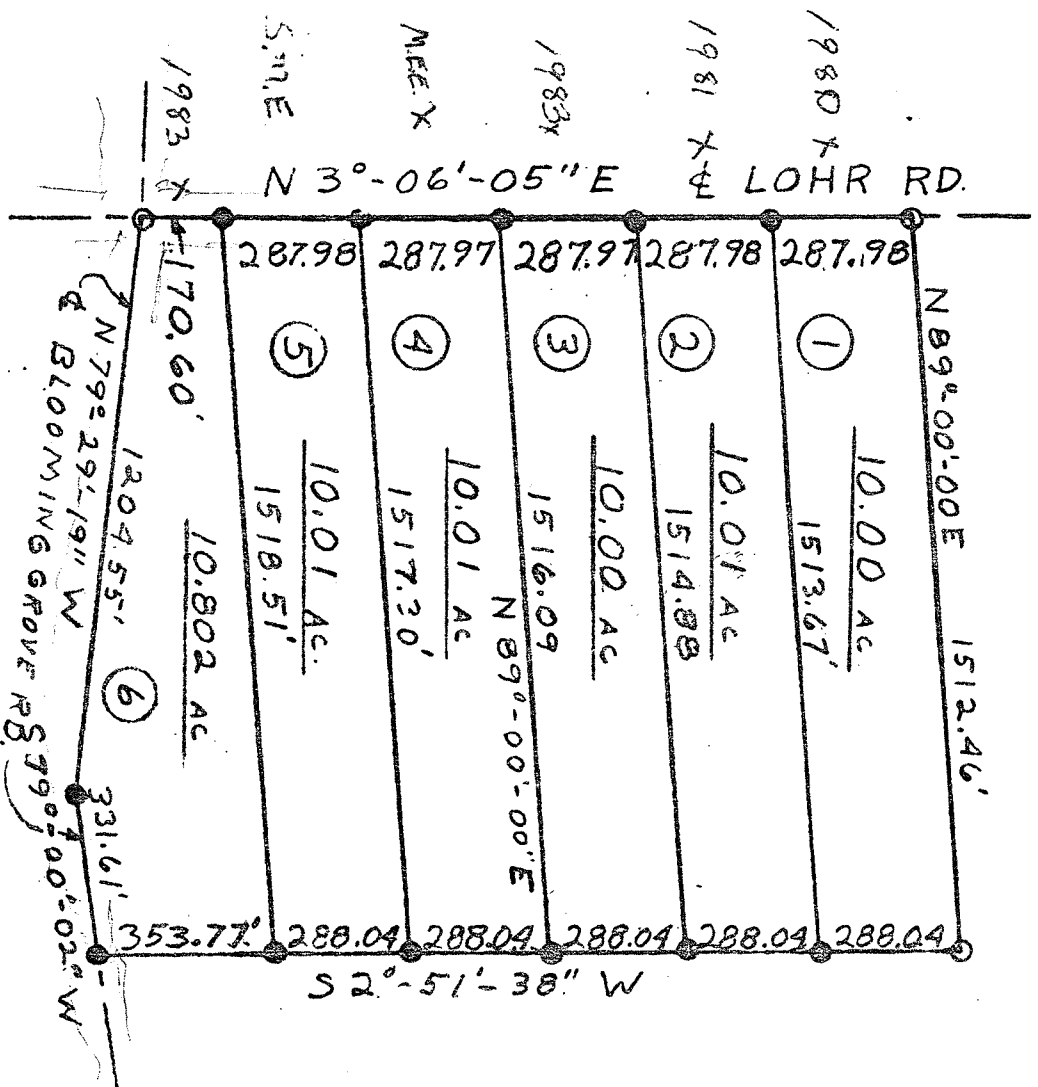 1980 X
1981 X
1983X
MEE X
1983 X
N 3°-06'-05" E ℄ LOHR RD.
170.60'
287.98
287.97
287.97
287.98
287.98
N 89°-00'-00E 1512.46'
1
10.00 AC
1513.67'
2
10.01 AC
1514.88
3
10.00 AC
1516.09
N 89°-00'-00"E
4
10.01 AC
1517.30'
5
10.01 AC.
1518.51'
6
10.802 AC
1204.55'
N 79°-29'-19" W
℄ BLOOMING GROVE RD.
331.61'
S 79°-00'-02" W
353.77'
288.04
288.04
288.04
288.04
288.04
S 2°-51'-38" W